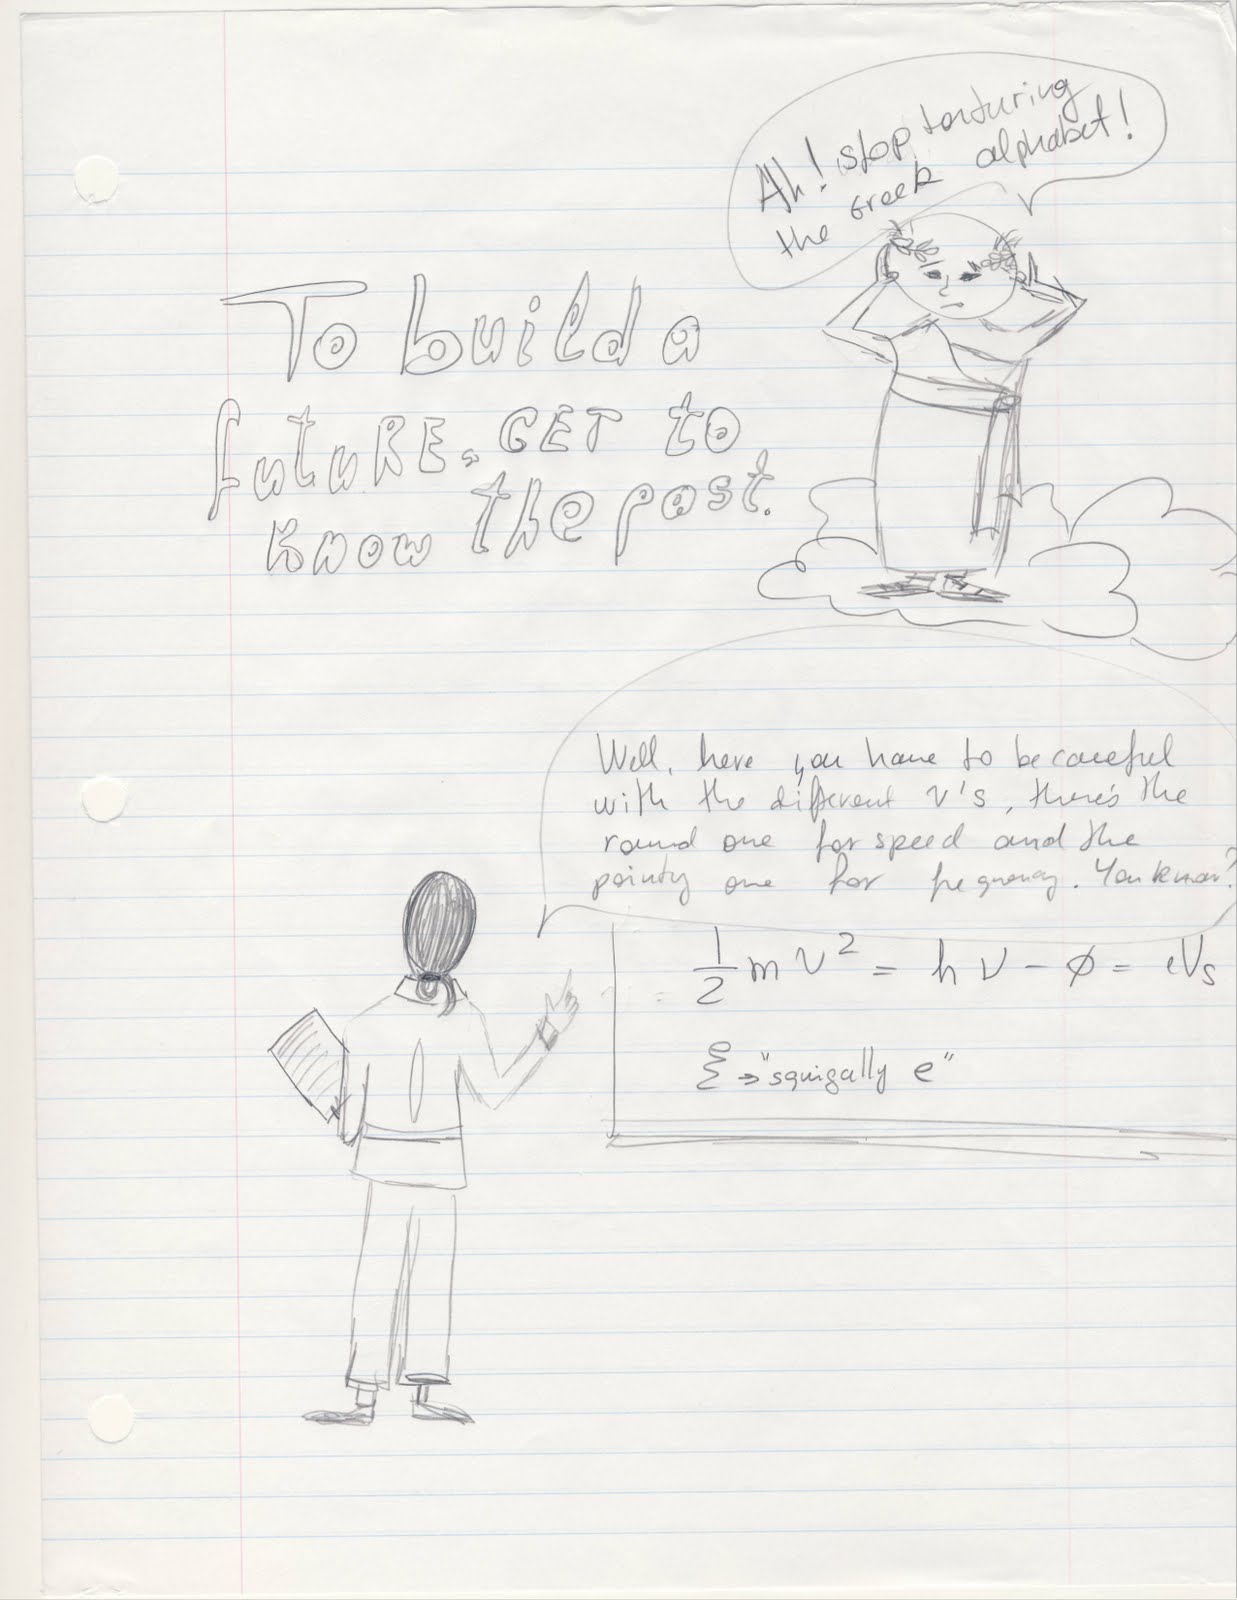 Ah! stop torturing
the Greek alphabet!
To build a
futuRE, GET to
know the past.
Well, here you have to be careful
with the different v's, there's the
round one for speed and the
pointy one for frequency. You know?
1/2 mv² = hν - φ = eVs
ξ → "squigally e"